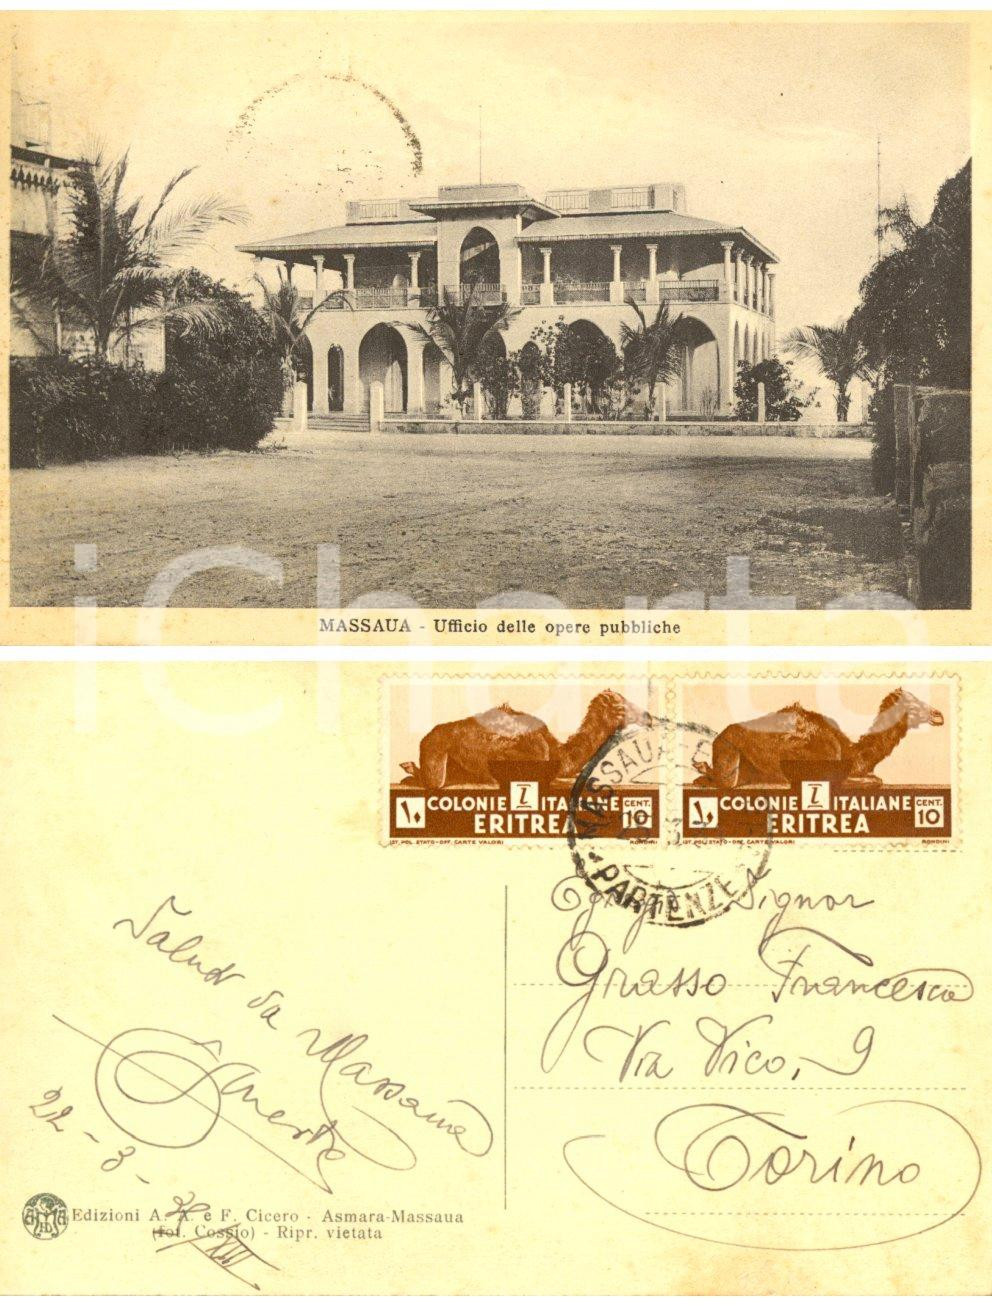 MASSAUA - Ufficio delle opere pubbliche
iCharta
COLONIE ITALIANE
ERITREA
CENT. 10
IST. POL. STATO - OFF. CARTE VALORI
RONDINI
COLONIE ITALIANE
ERITREA
CENT. 10
IST. POL. STATO - OFF. CARTE VALORI
RONDINI
MASSAUA
PARTENZE
Signor
Grasso Francesco
Via Vico, 9
Torino
Saluti da Massaua
22-3-
XIII
Edizioni A. A. e F. Cicero - Asmara-Massaua
(fot. Cossio) - Ripr. vietata